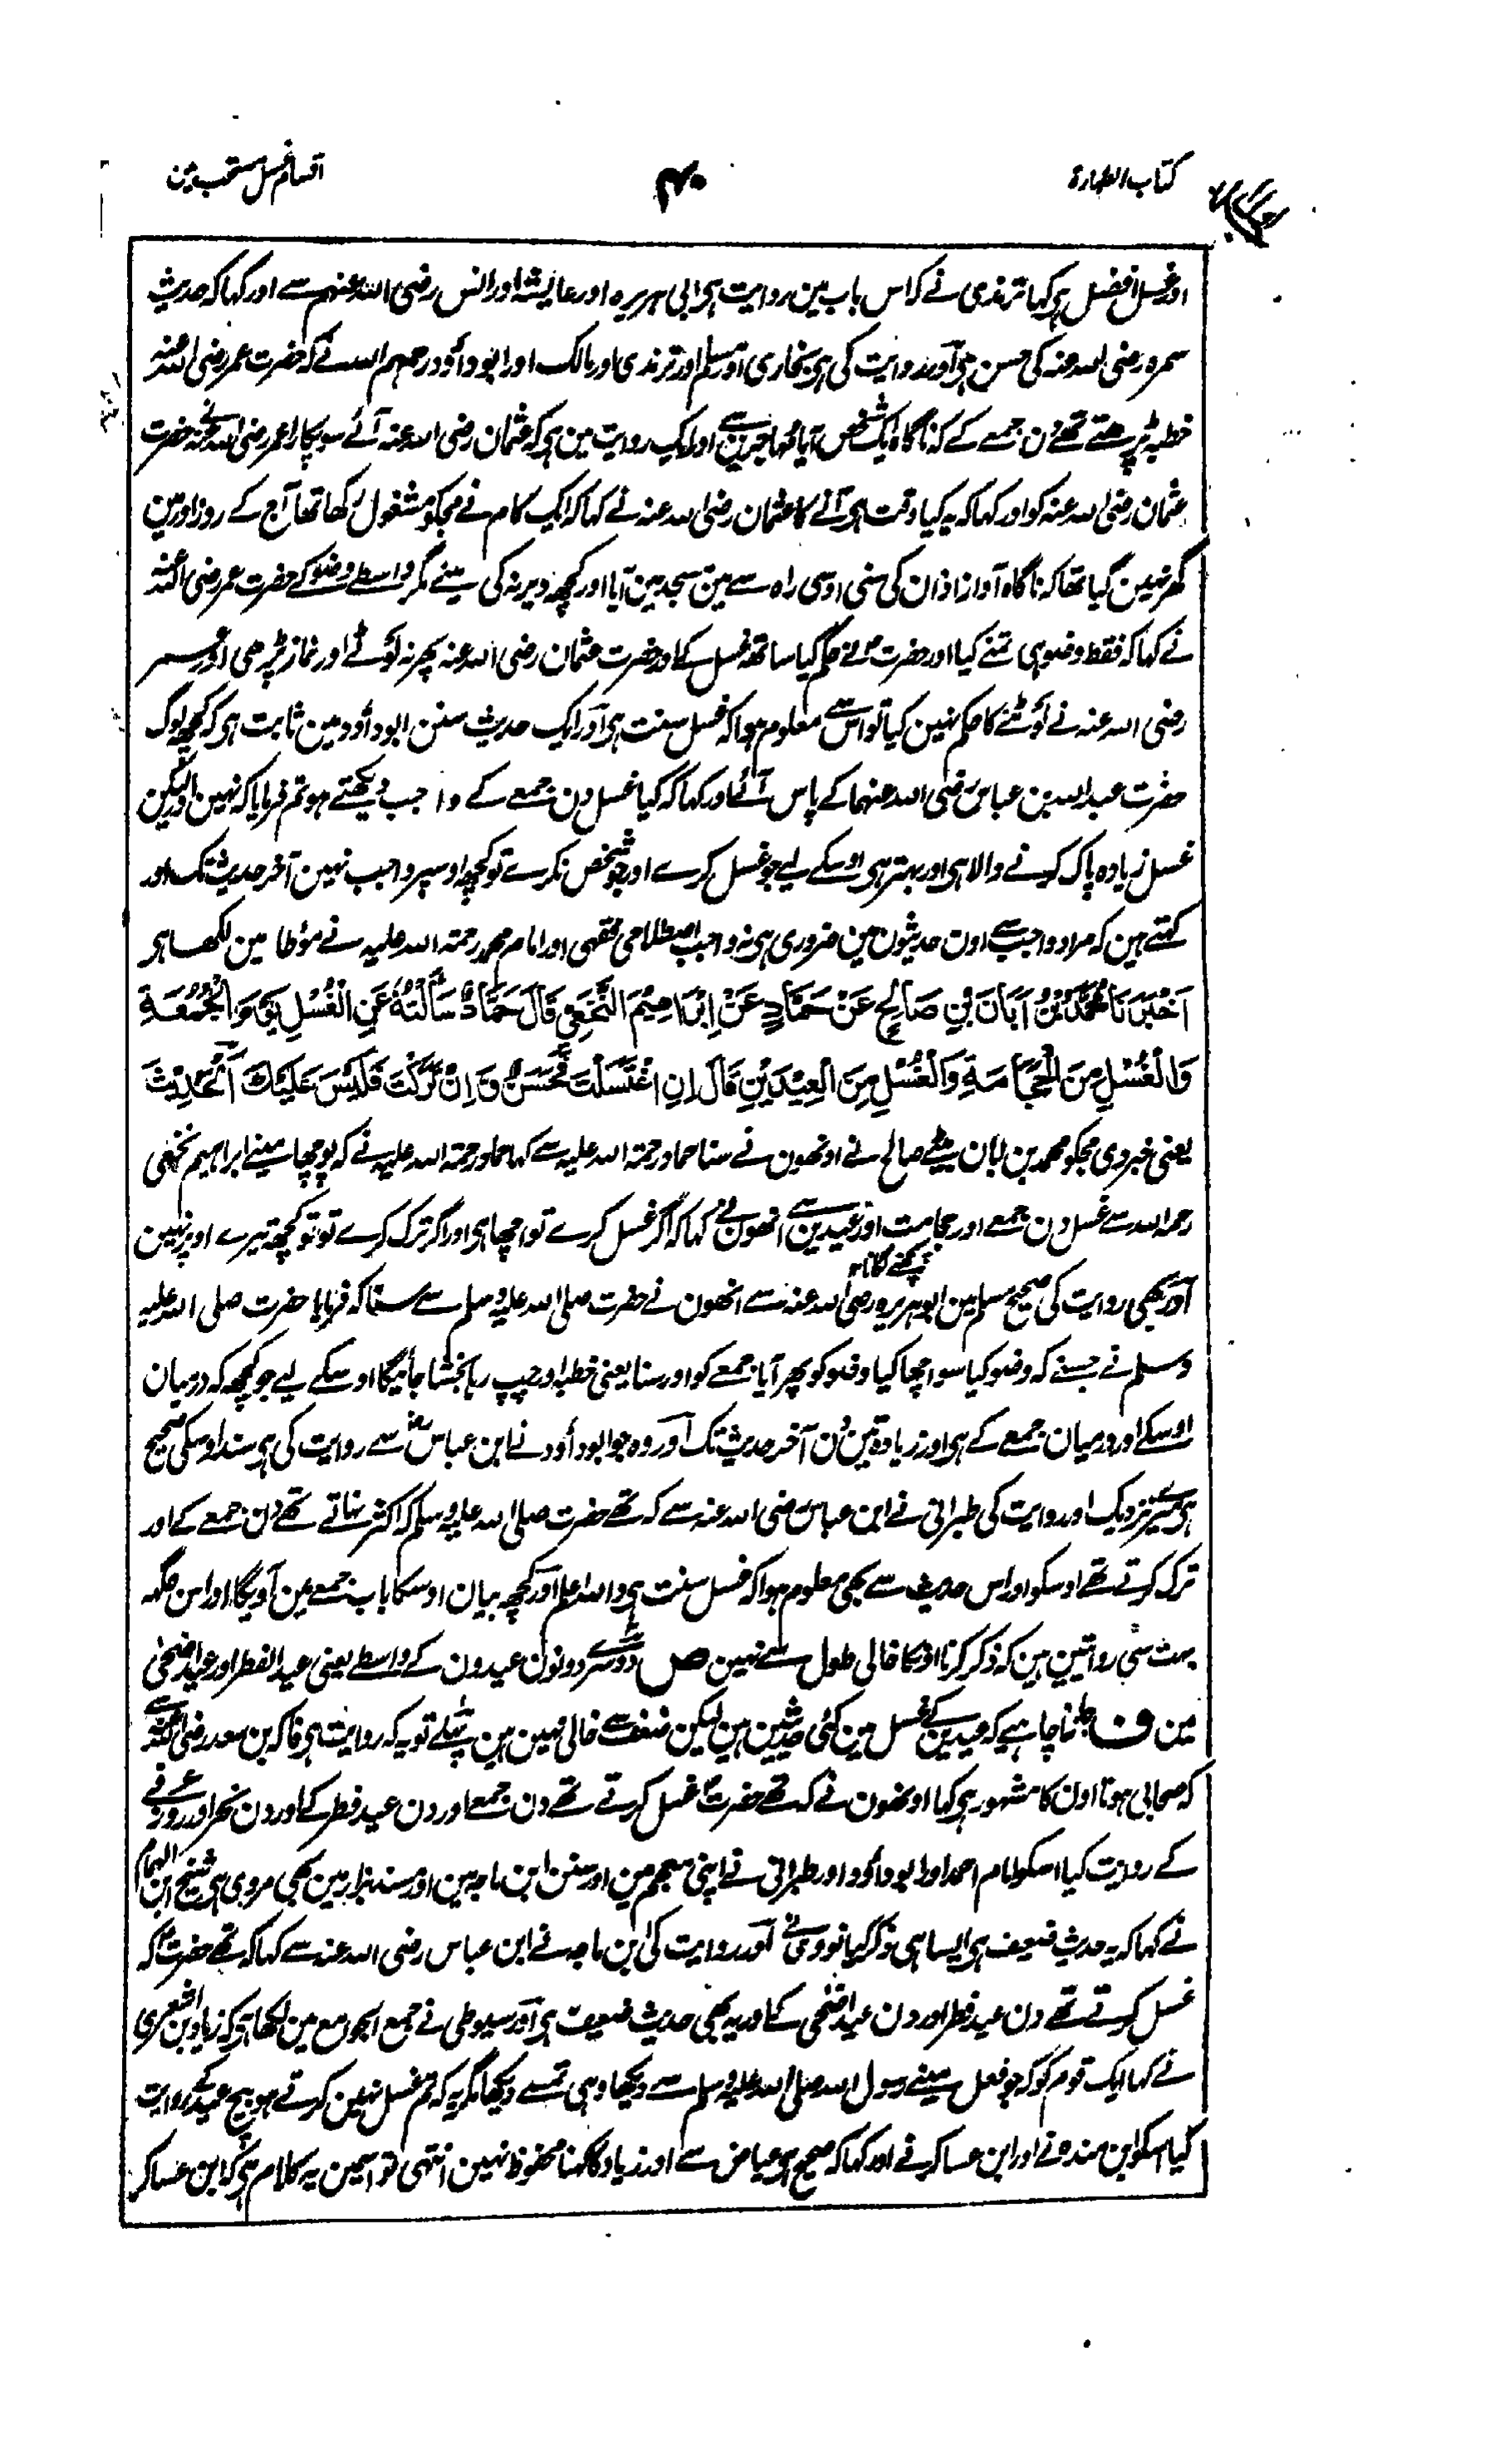 کتاب الطہارۃ
۴۰
اقسام غسل مستحب مین
اور غسل افضل ہی کہا ترمذی نے کہ اس باب مین روایت ہی ابی ہریرہ اور عایشہ اور انس رضی اللہ عنہم سے اور کہا کہ حدیث
سمرہ رضی اللہ عنہ کی حسن ہی آور روایت کی ہی بخاری آور مسلم اور ترمذی اور مالک اور ابو داؤد رحمہم اللہ نے کہ حضرت عمر رضی اللہ عنہ
خطبہ پڑھتے تھے دن جمعے کے کہ ناگاہ ایک شخص آیا مہاجرین سے اور ایک روایت مین ہی کہ عثمان رضی اللہ عنہ آئے سو پکارا عمر رضی اللہ عنہ نے حضرت
عثمان رضی اللہ عنہ کو اور کہا کہ یہ کیا وقت ہی آنے کا عثمان رضی اللہ عنہ نے کہا کہ ایک کام نے مجکو مشغول رکھا تھا آج کے روز اور مین
گھر نہین گیا تھا کہ ناگاہ آواز اذان کی سنی اوسی راہ سے مین مسجد مین آیا اور کچھ دیر نہ کی مینے مگر واسطے وضو کے حضرت عمر رضی اللہ عنہ
نے کہا کہ فقط وضو ہی تمنے کیا اور حضرت نے حکم کیا ساتھ غسل کے اور حضرت عثمان رضی اللہ عنہ پھر نہ لوٹے اور نماز پڑھی اور عمر
رضی اللہ عنہ نے لوٹنے کا حکم نہین کیا تو اس سے معلوم ہوا کہ غسل سنت ہی آور ایک حدیث سنن ابو داؤد مین ثابت ہی کہ کچھ لوگ
حضرت عبد اللہ بن عباس رضی اللہ عنہما کے پاس آئے اور کہا کہ کیا غسل دن جمعے کے واجب دیکھتے ہو تم فرمایا کہ نہین اور لیکن
غسل زیادہ پاک کرنے والا ہی اور بہتر ہی اوسکے لیے جو غسل کرے اور جو شخص نکرے تو کچھ اوسپر واجب نہین آخر حدیث تک اور
کہتے ہین کہ مراد واجب سے اون حدیثون مین ضروری ہی نہ واجب اصطلاحی فقہی اور امام محمد رحمۃ اللہ علیہ نے مؤطا مین لکھا ہر
اَخْبَرَنَا مُحَمَّدُ بْنُ اَبَانَ بْنِ صَالِحٍ عَنْ حَمَّادٍ عَنْ اِبْرَاهِيْمَ النَّخَعِيِّ قَالَ حَمَّادٌ سَاَلْتُهٗ عَنِ الْغُسْلِ يَوْمَ الْجُمُعَةِ
وَالْغُسْلِ مِنَ الْحِجَامَةِ وَالْغُسْلِ مِنَ الْعِيْدَيْنِ قَالَ اِنِ اغْتَسَلْتَ فَحَسَنٌ وَاِنْ تَرَكْتَ فَلَيْسَ عَلَيْكَ اَلْحَدِيْثَ
یعنی خبر دی مجکو محمد بن ابان بیٹے صالح نے اونھون نے سنا حماد رحمۃ اللہ علیہ سے کہا حماد رحمۃ اللہ علیہ نے کہ پوچھا مینے ابراہیم نخعی
رحمہ اللہ سے غسل دن جمعے اور حجامت اور عیدین سے انھون نے کہا کہ اگر غسل کرے تو اچھا ہی اور اگر ترک کرے تو تو کچھ تیرے اوپر نہین
آور بھی روایت کی صحیح مسلم مین ابو ہریرہ رضی اللہ عنہ سے انھون نے حضرت صلی اللہ علیہ وسلم سے سنا کہ فرمایا حضرت صلی اللہ علیہ
وسلم نے جسنے کہ وضو کیا سو اچھا کیا وضو کو پھر آیا جمعے کو اور سنا یعنی خطبہ اور چپ رہا بخشا جائیگا اوسکے لیے جو کچھ کہ درمیان
اوسکے اور درمیان جمعے کے ہی اور زیادہ تین دن آخر حدیث تک آور وہ جو ابو داؤد نے ابن عباس سے روایت کی ہی سند اوسکی صحیح
ہی میرے نزدیک اور روایت کی طبرانی نے ابن عباس رضی اللہ عنہ سے کہ تھے حضرت صلی اللہ علیہ وسلم کہ اکثر نہاتے تھے دن جمعے کے اور
ترک کرتے تھے اوسکو اور اس حدیث سے بھی معلوم ہوا کہ غسل سنت ہی واللہ اعلم اور کچھ بیان اوسکا باب جمعے مین آویگا اور اس جگہ
بہت سی روایتین ہین کہ ذکر کرنا اونکا خالی طول سے نہین ص دوسرے دونون عیدون کے واسطے یعنی عید الفطر اور عید اضحی
مین ف جاننا چاہیے کہ عیدین کے غسل مین کئی حدیثین ہین لیکن ضعف سے خالی نہین ہین پہلے تو یہ کہ روایت ہی فاکہ بن سعد رضی اللہ عنہ سے
کہ صحابی ہونا اون کا مشہور ہی کہا اونھون نے کہ تھے حضرت غسل کرتے تھے دن جمعے اور دن عید فطر کے اور دن نحر اور روز عرفے
کے روایت کیا اسکو امام احمد اور ابو داؤد اور طبرانی نے اپنی معجم مین اور سنن ابن ماجہ مین اور مسند بزار مین بھی مروی ہی شیخ ابن الہمام
نے کہا کہ یہ حدیث ضعیف ہی ایسا ہی ذکر کیا نووی نے آور روایت کی ابن ماجہ نے ابن عباس رضی اللہ عنہ سے کہا کہ تھے حضرت کہ
غسل کرتے تھے دن عید فطر اور دن عید اضحی کے اور یہ بھی حدیث ضعیف ہی آور سیوطی نے جمع الجوامع مین لکھا ہی کہ زیاد بن اشعری
نے کہا ایک قوم کو کہ جو فعل مینے رسول اللہ صلی اللہ علیہ وسلم سے دیکھا وہی تمسے دیکھا مگر یہ کہ تم غسل نہین کرتے ہو بیچ عید کے روایت
کیا اسکو ابن مندہ نے اور ابن عساکر نے اور کہا کہ صحیح ہی عیاض سے اور زیاد کا کہنا محفوظ نہین انتہی تو اسمین یہ کلام ہی کہ ابن عساکر